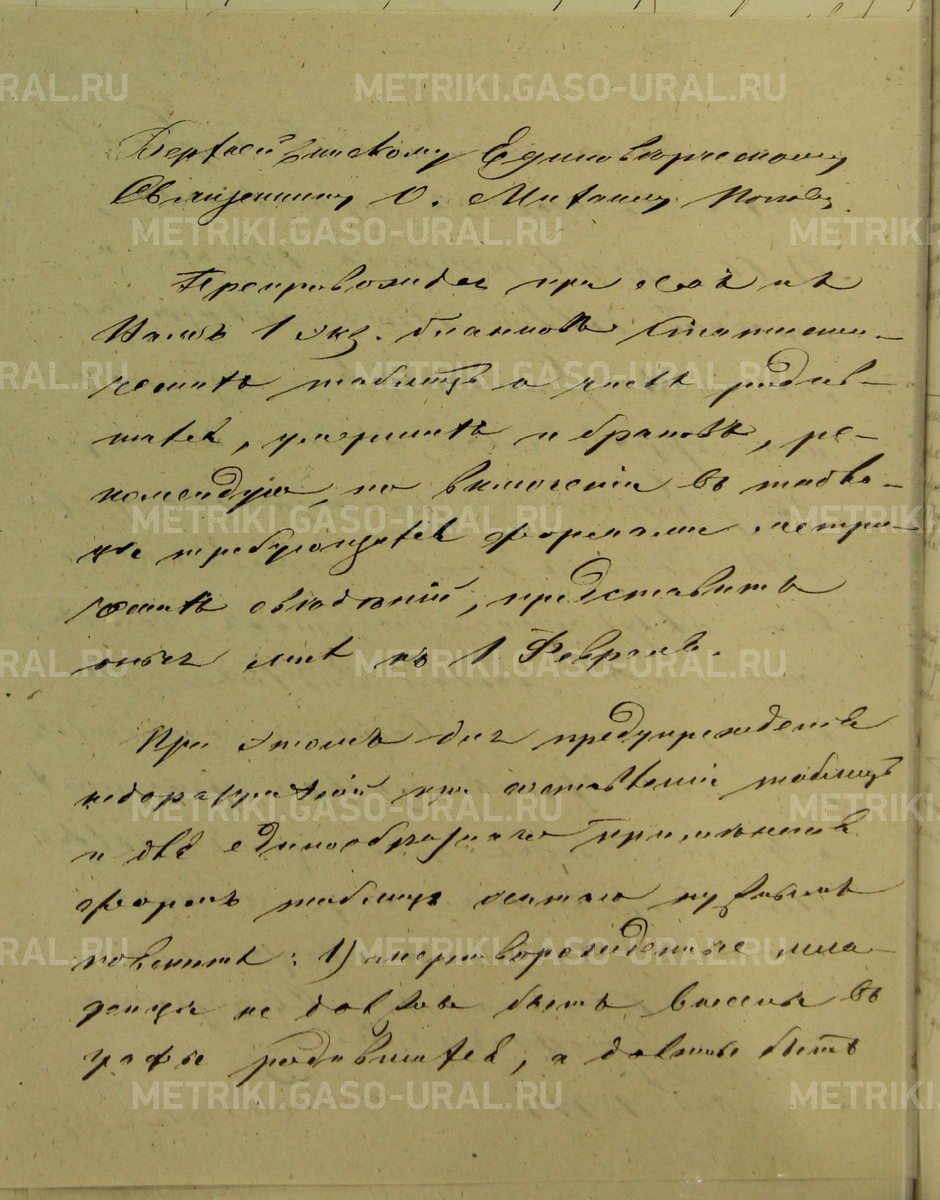 METRIKI.GASO-URAL.RU
Верхнейвинскому Единоверческому
Священнику О. Михаилу Попову.
METRIKI.GASO-URAL.RU
Препровождая при семъ къ
Вамъ 1 экз. бланковъ Статисти-
ческихъ таблицъ о числѣ родив-
шихся, умершихъ и браковъ, ре-
комендую, по включеніи въ таблі-
цы требующихся формами метри-
ческихъ свѣдѣній, представить
оныя мнѣ къ 1 Февраля.
При этомъ для предупрежденія
недоразумѣній при составленіи таблицъ
и для единообразнаго приложенія
формъ таблицъ считаю нужнымъ
: 1) мертворожденные мла-
денцы не должны быть внесены въ
графы родившихся, а должны быть
METRIKI.GASO-URAL.RU